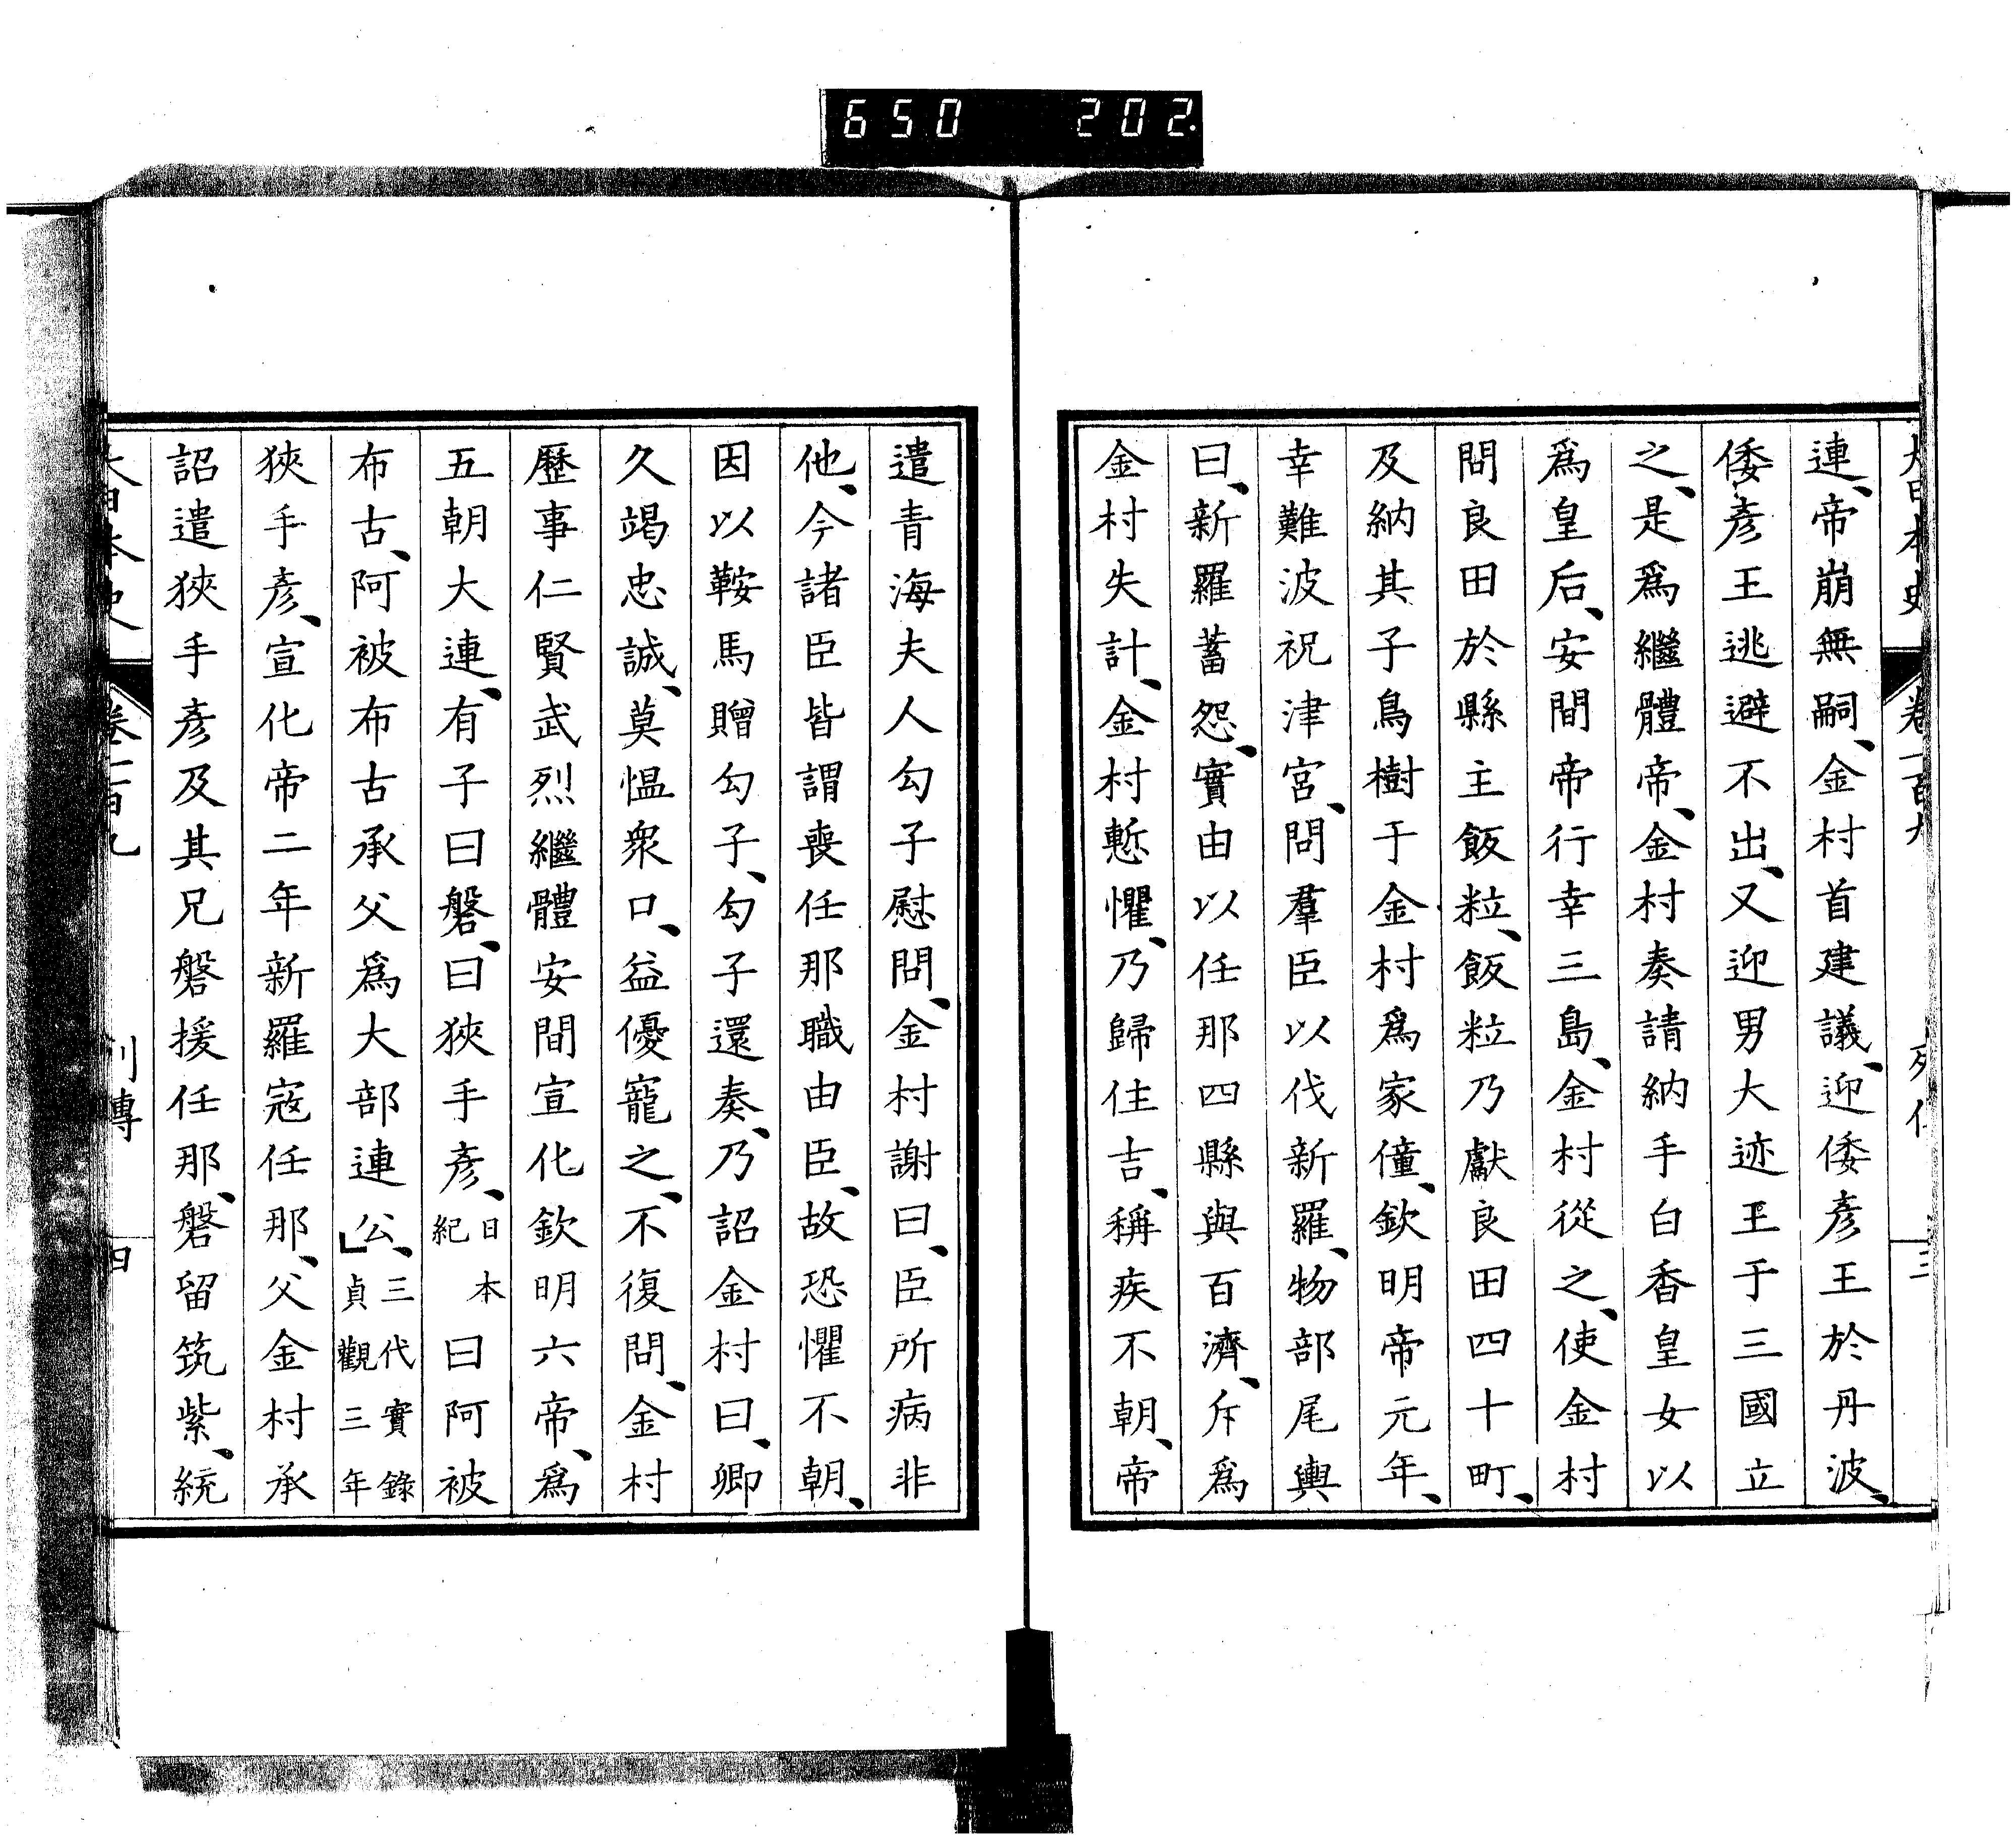 650 202.
連、帝崩無嗣、金村首建議、迎倭彥王於丹波、
倭彥王逃避不出、又迎男大迹王于三國立
之、是爲繼體帝、金村奏請納手白香皇女以
爲皇后、安閒帝行幸三島、金村從之、使金村
問良田於縣主飯粒、飯粒乃獻良田四十町、
及納其子鳥樹于金村爲家僮、欽明帝元年、
幸難波祝津宮、問羣臣以伐新羅、物部尾輿
曰、新羅蓄怨、實由以任那四縣與百濟、斥爲
金村失計、金村慙懼、乃歸住吉、稱疾不朝、帝
遣青海夫人勾子慰問、金村謝曰、臣所病非
他、今諸臣皆謂喪任那職由臣、故恐懼不朝、
因以鞍馬贈勾子、勾子還奏、乃詔金村曰、卿
久竭忠誠、莫慍衆口、益優寵之、不復問、金村
歷事仁賢武烈繼體安閒宣化欽明六帝、爲
五朝大連、有子曰磐、曰狹手彥、日本紀曰阿被
布古、阿被布古承父爲大部連公、」三代實錄貞觀三年
狹手彥、宣化帝二年新羅寇任那、父金村承
詔遣狹手彥及其兄磐援任那、磐留筑紫、統
大日本史 卷一百九 列傳 四